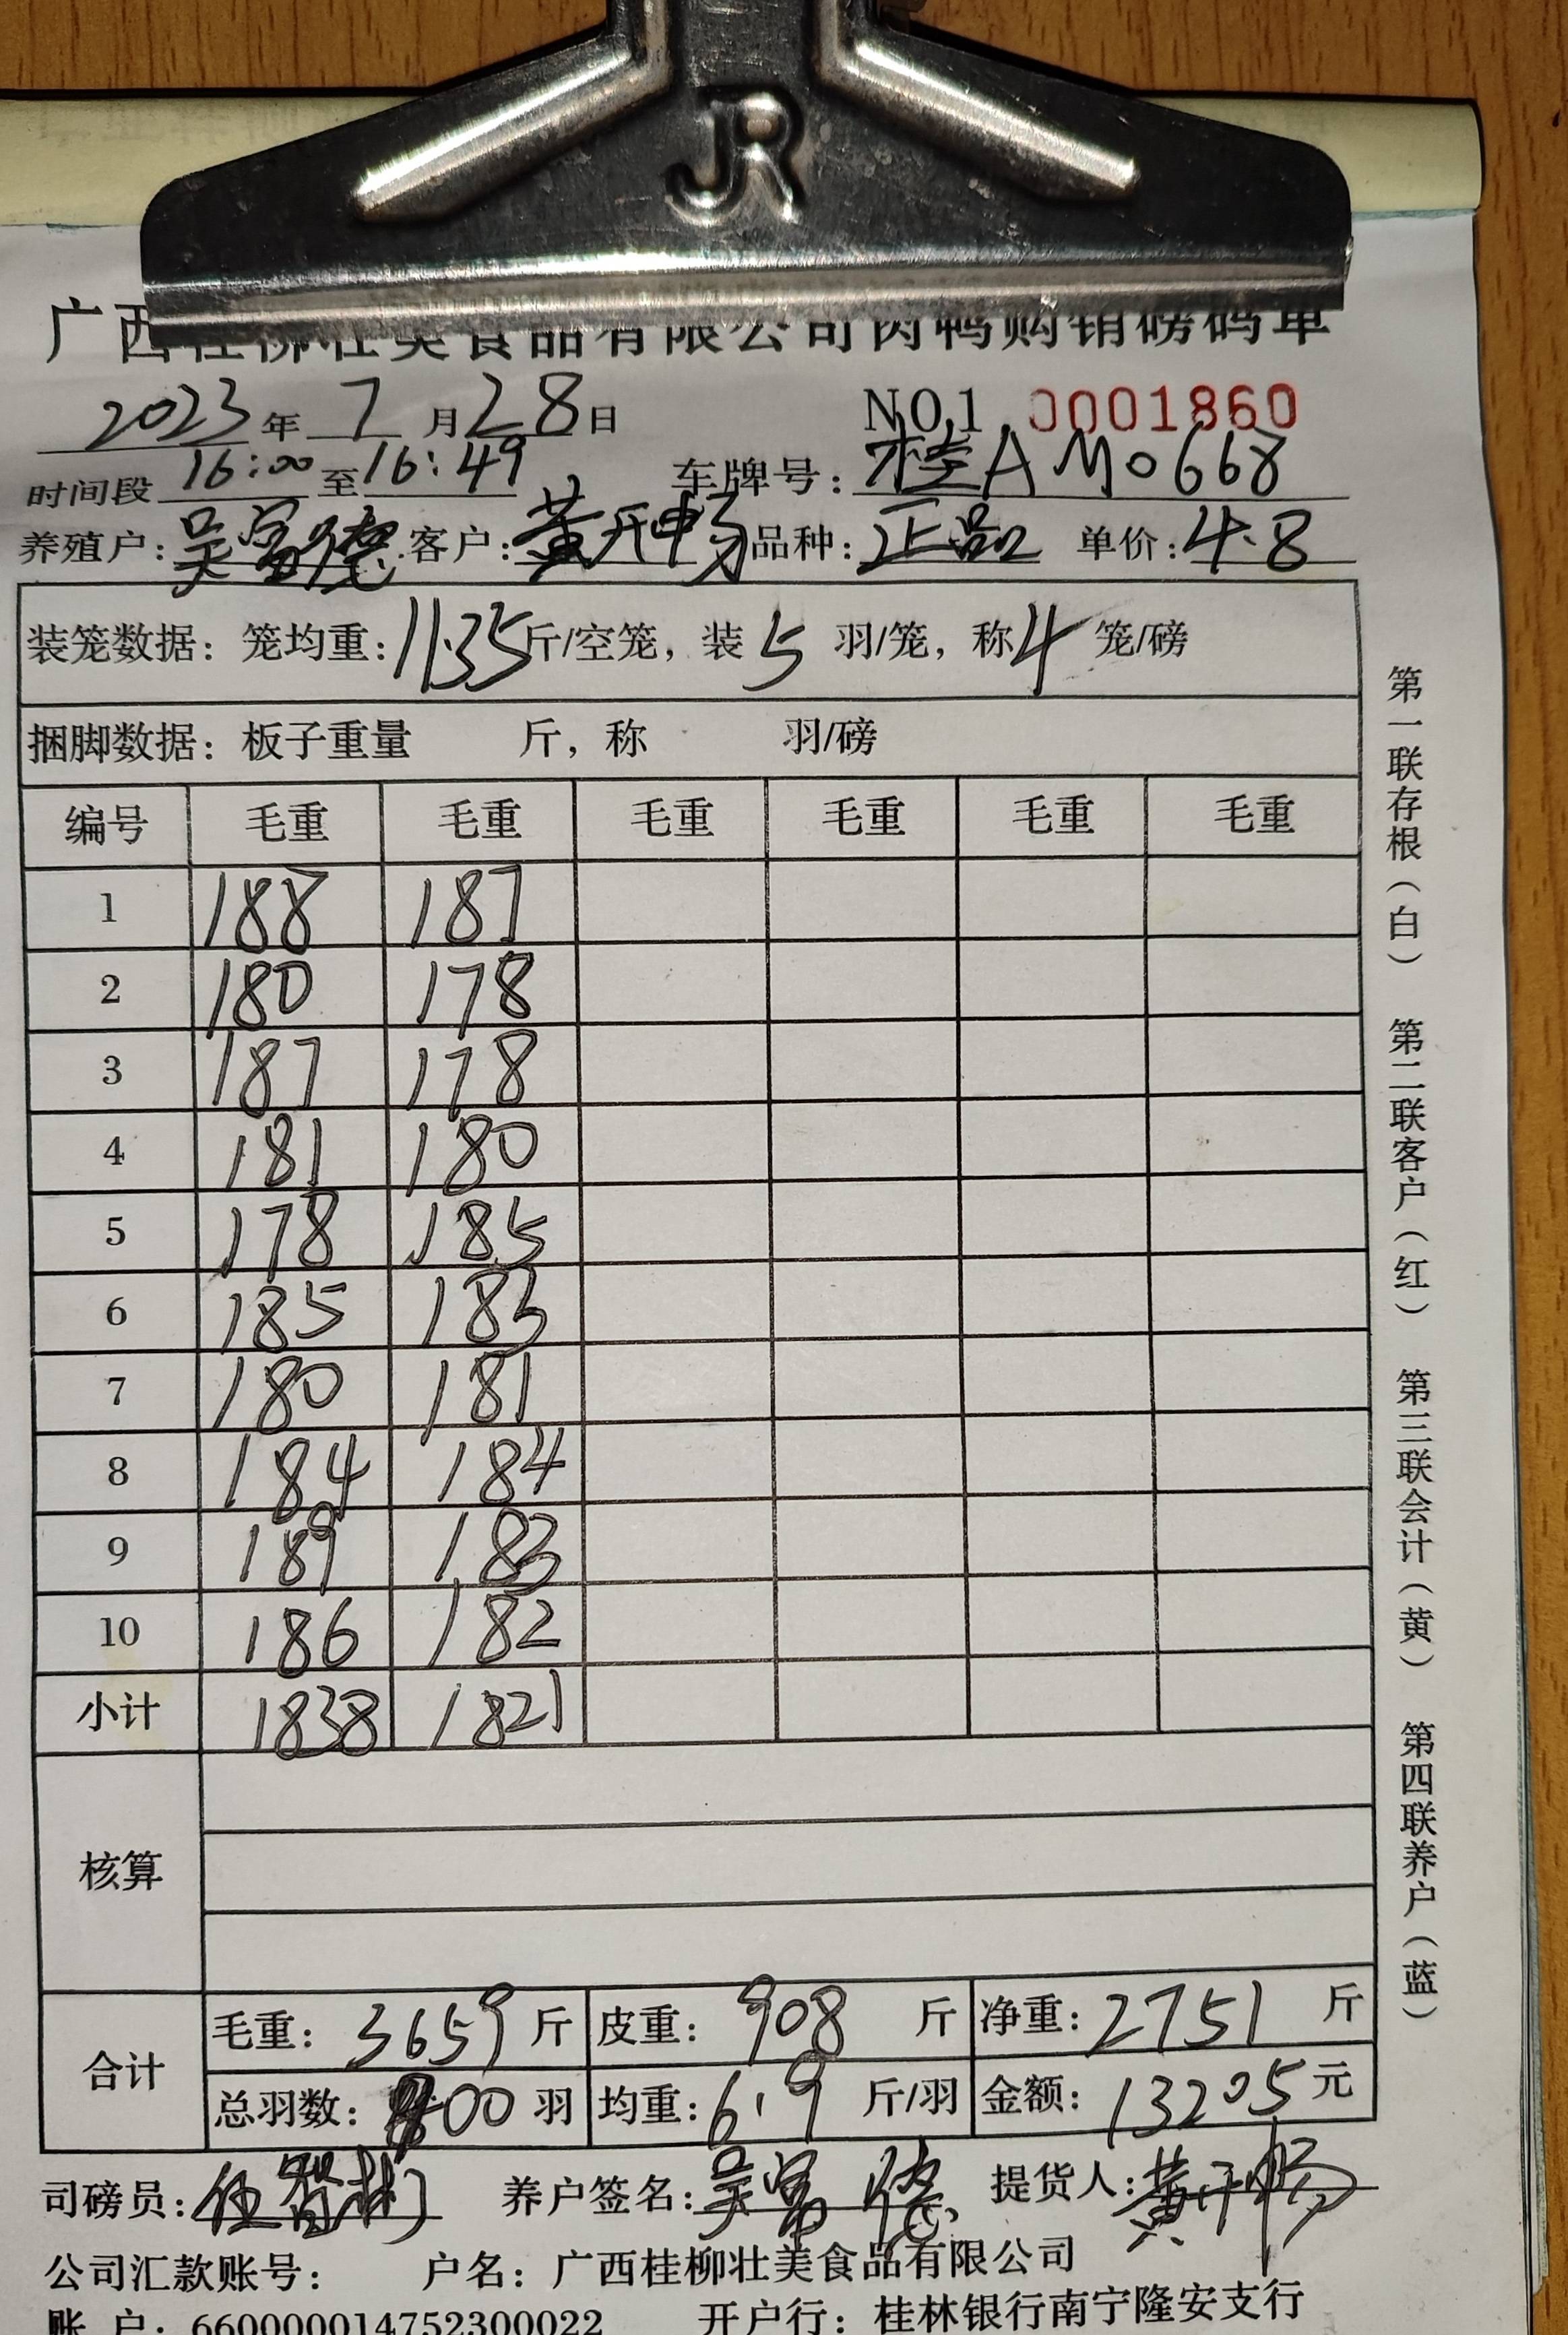 JR
广西桂柳壮美食品有限公司肉鸭购销磅码单
2023年 7 月28日 NO1 0001860
时间段 16:00 至 16:49 车牌号: 桂AM0668
养殖户: 吴富德 客户: 黄开畅 品种: 正品 单价: 4.8
装笼数据: 笼均重: 11.35斤/空笼, 装 5 羽/笼, 称 4 笼/磅
捆脚数据: 板子重量 斤, 称 羽/磅
编号 毛重 毛重 毛重 毛重 毛重 毛重
1 188 187
2 180 178
3 187 178
4 181 180
5 178 185
6 185 183
7 180 181
8 184 184
9 189 183
10 186 182
小计 1838 1821
核算
合计
毛重: 3659 斤 皮重: 908 斤 净重: 2751 斤
总羽数: 400 羽 均重: 6.9 斤/羽 金额: 13205 元
司磅员: 伍智彬 养户签名: 吴富德 提货人: 黄开畅
公司汇款账号: 户名: 广西桂柳壮美食品有限公司
账 户: 660000014752300022 开户行: 桂林银行南宁隆安支行
第一联存根(白) 第二联客户(红) 第三联会计(黄) 第四联养户(蓝)